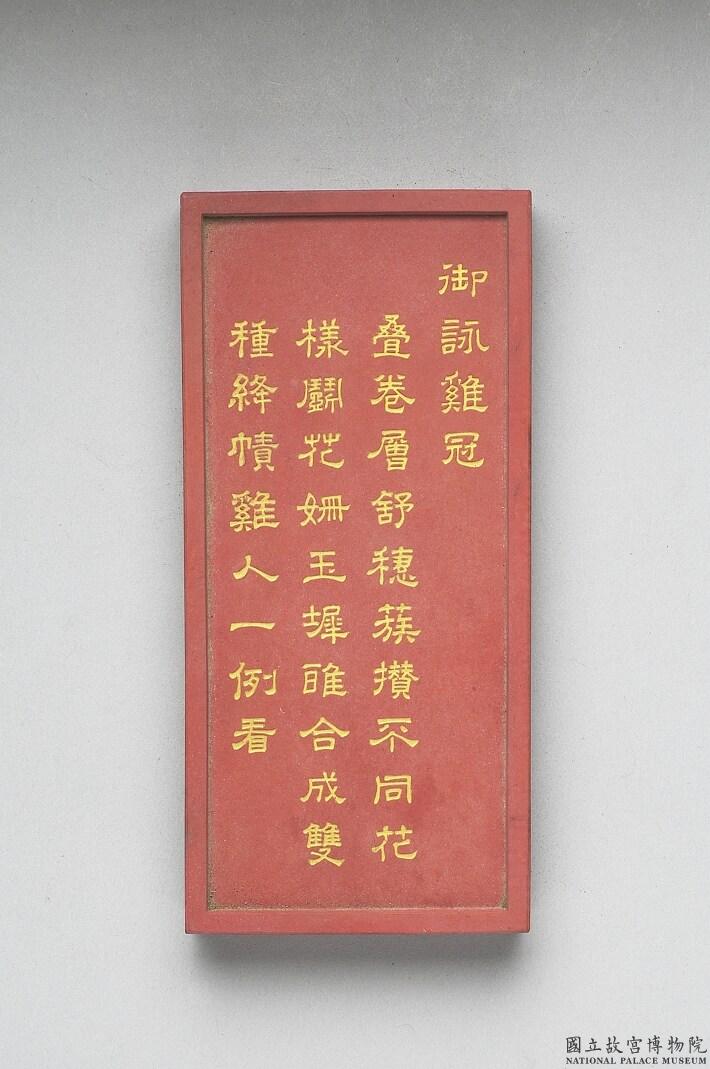 御詠雞冠
叠卷層舒穗蔟攢不同花
樣鬭花姍玉墀雅合成雙
種絳幘雞人一例看
國立故宮博物院
NATIONAL PALACE MUSEUM